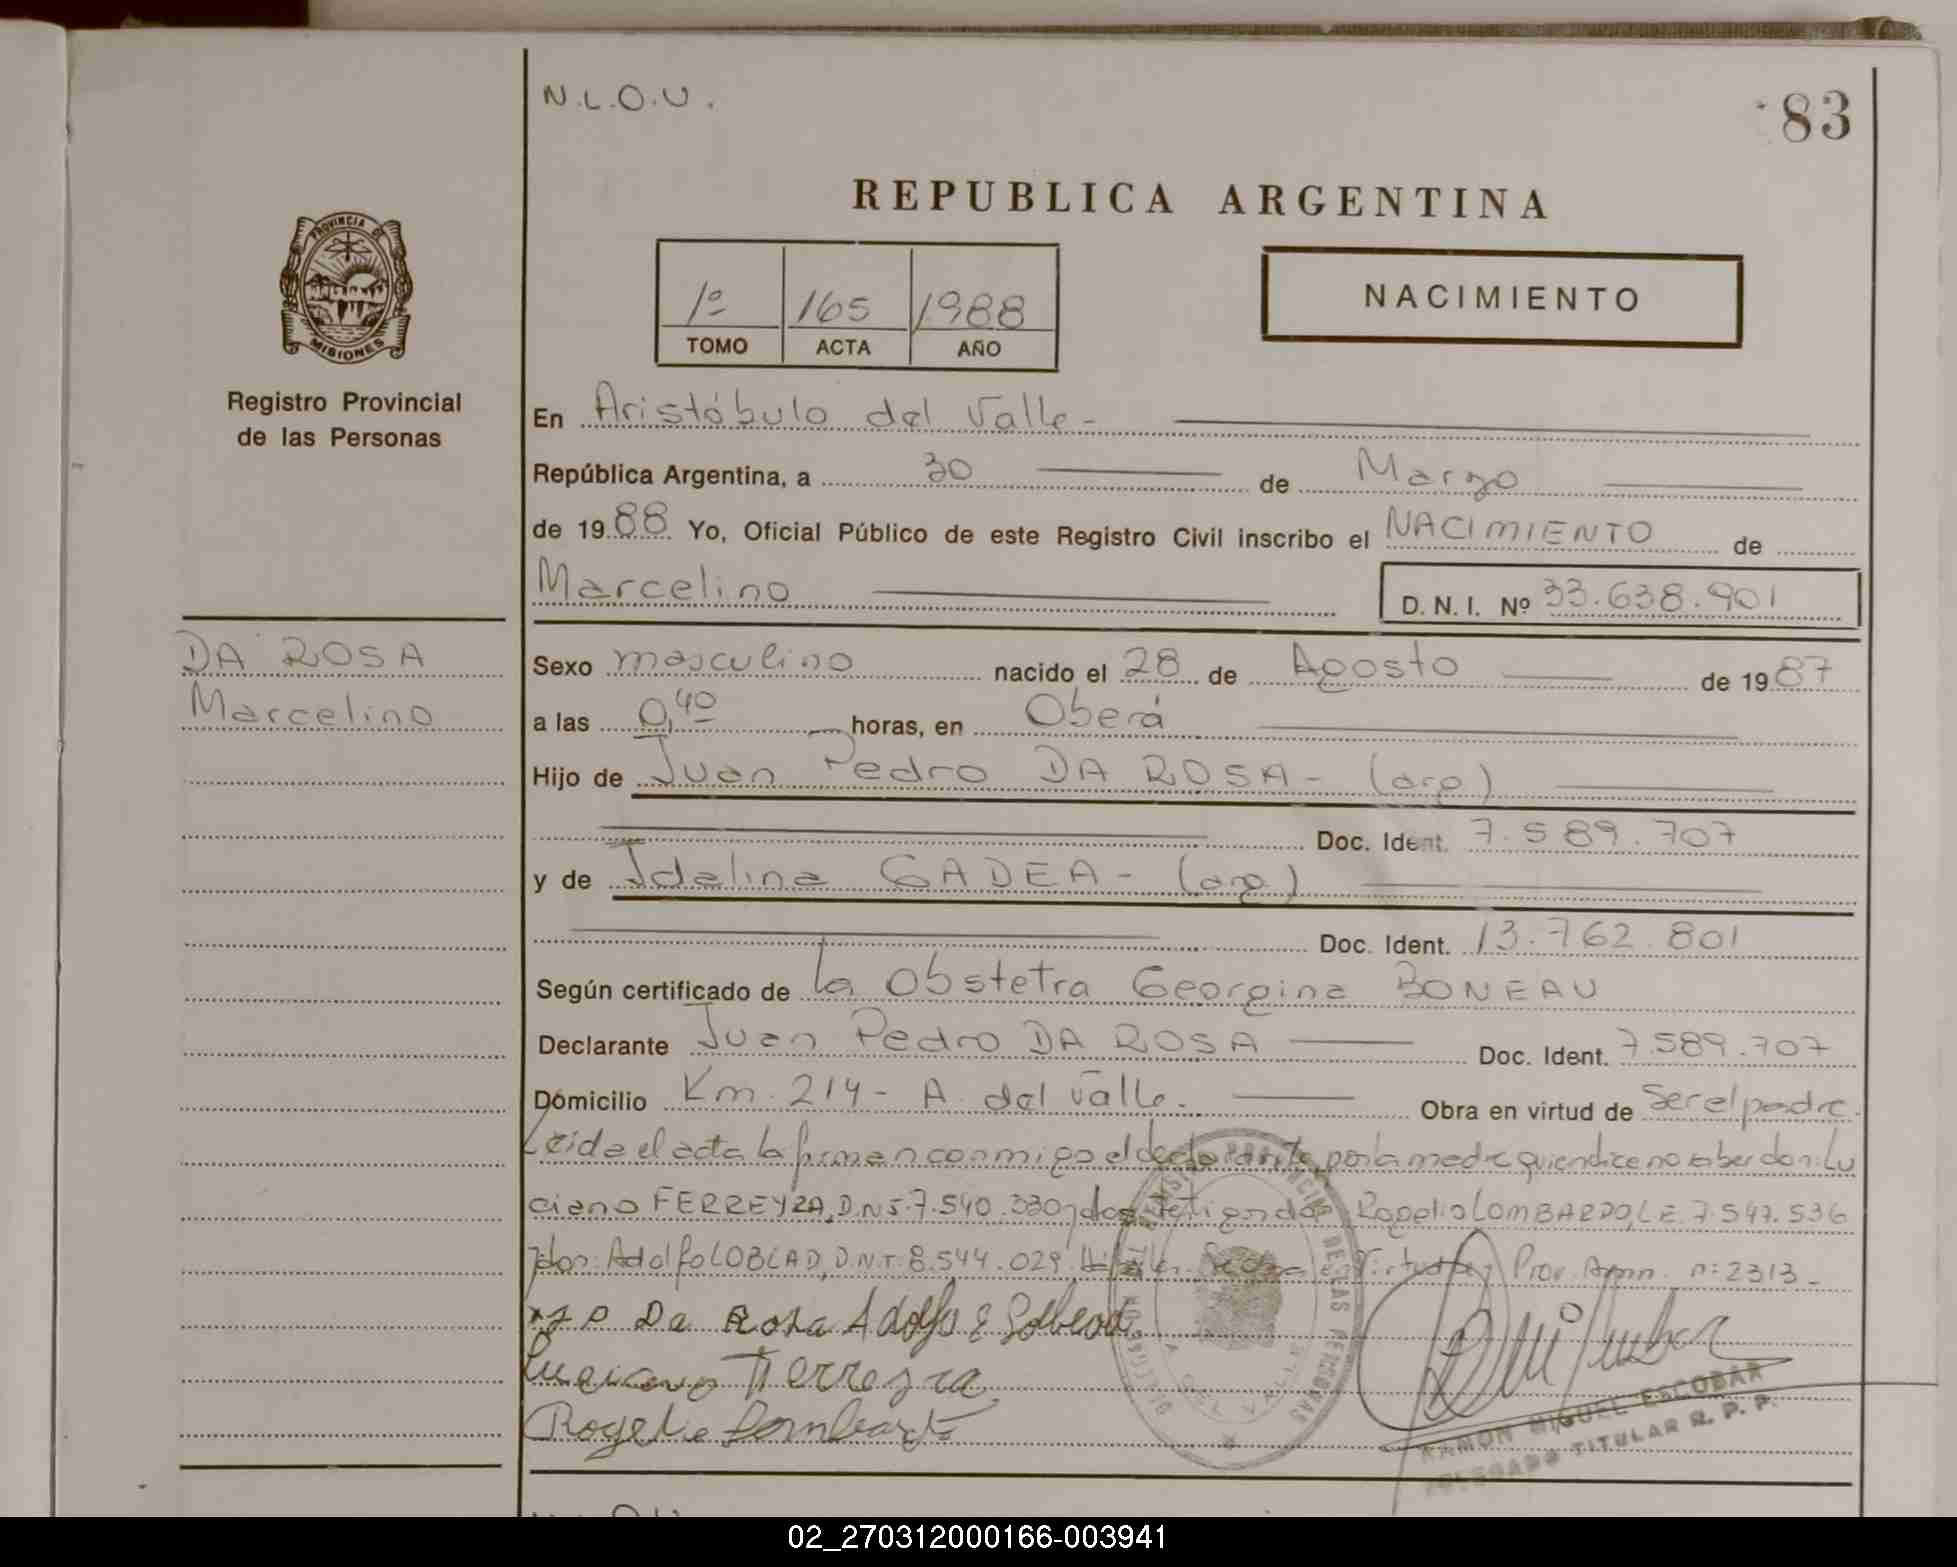 N.L.O.U.
83
REPUBLICA ARGENTINA
PROVINCIA DE
MISIONES
1º 165 1988
TOMO ACTA AÑO
NACIMIENTO
Registro Provincial
de las Personas
En Aristóbulo del Valle -
República Argentina, a 30 de Marzo
de 1988 Yo, Oficial Público de este Registro Civil inscribo el NACIMIENTO de
Marcelino D.N.I. Nº 33.638.901
DA ROSA
Marcelino
Sexo masculino nacido el 28 de Agosto de 1987
a las 0,40 horas, en Oberá
Hijo de Juan Pedro DA ROSA - (arg)
Doc. Ident. 7.589.707
y de Idelina GADEA - (arg)
Doc. Ident. 13.762.801
Según certificado de la Obstetra Georgina BONEAU
Declarante Juan Pedro DA ROSA Doc. Ident. 7.589.707
Domicilio Km. 214 - A. del Valle. Obra en virtud de Ser el padre.
Leida el acta la firman conmigo el declarante, por la madre quien dice no saber don: Lu
ciano FERREYRA, D.N.I. 7.540.330 y dos testigos don Rogelio LOMBARDO, L.E. 7.547.536
y don: Adolfo LOBLAD, D.N.I. 8.544.029. Prov. Amn. n: 2313 -
J P Da Rosa Adolfo E
Luciano Ferreyra
Rogelio Lombardo
RAMON MIGUEL ESCOBAR
DELEGADO TITULAR R. P. P.
02_270312000166-003941